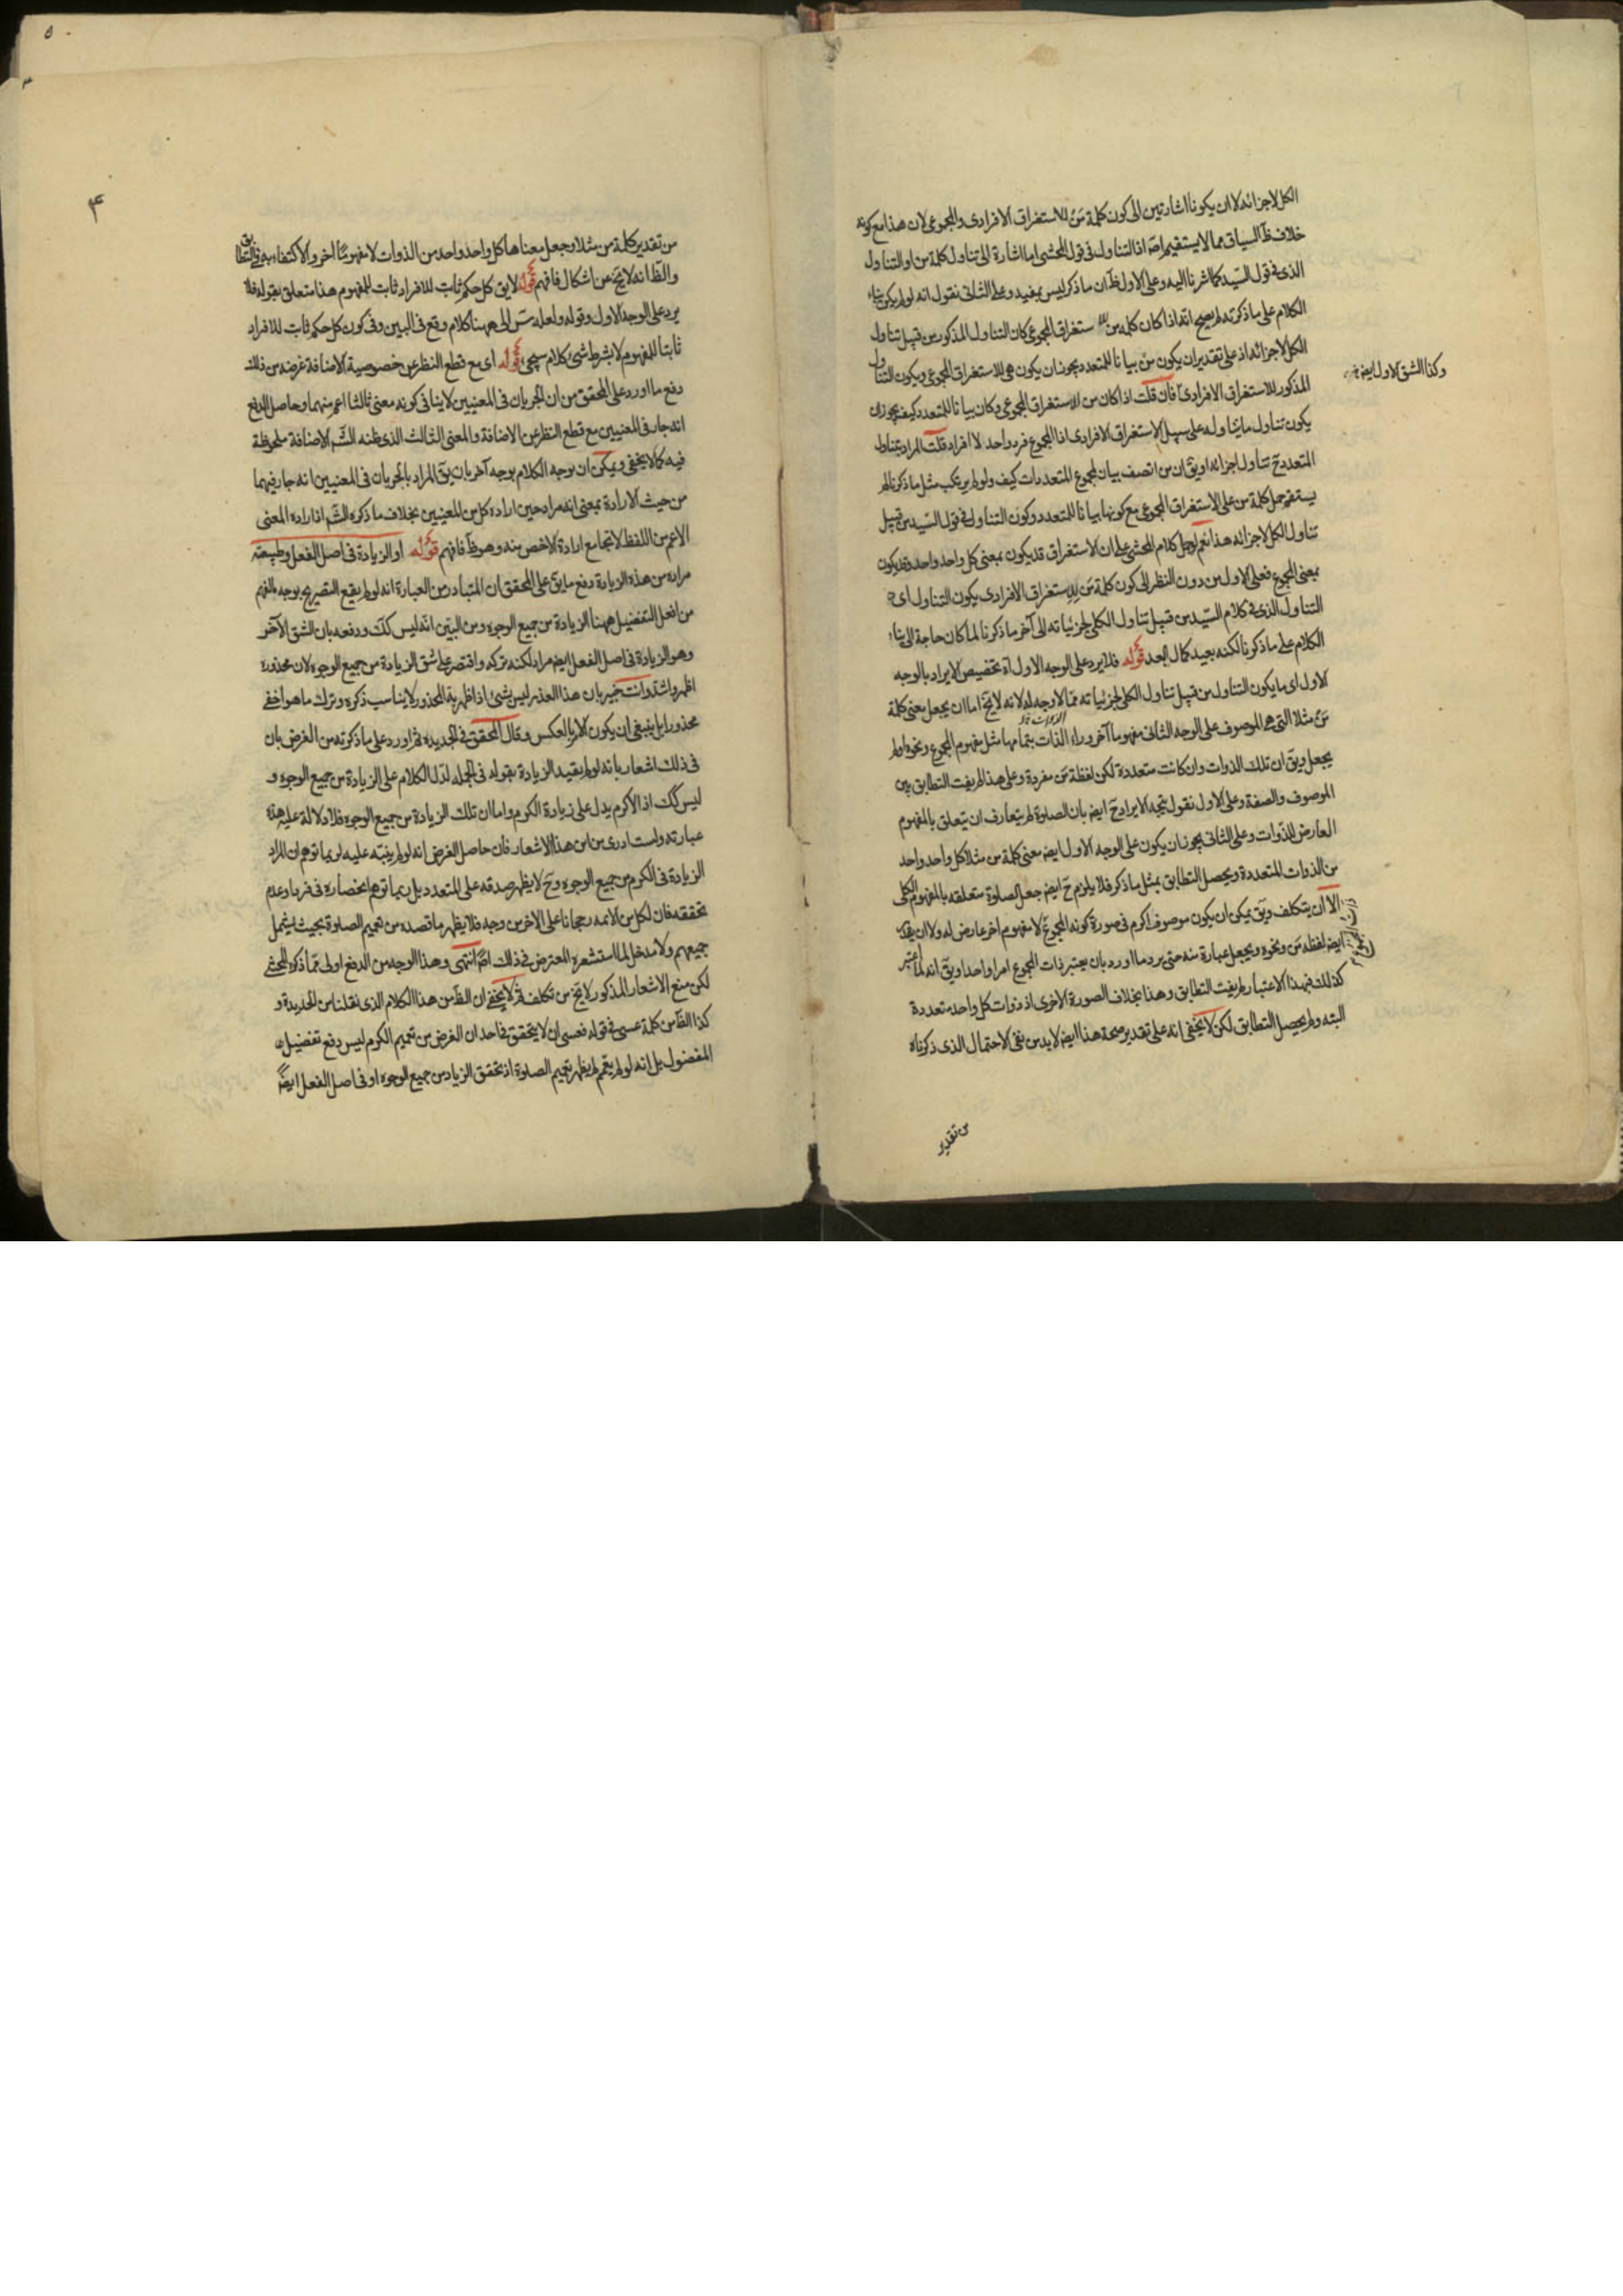 الكل لاجزائه لا ان يكونا اشارتين الى كون كلمة مَنْ للاستغراق الافرادى والمجموعى لان هذا مع كونه
خلاف ظ السياق مما لا يستقيم اصلا اذ التناول فى قول المحشى اما اشارة الى تناول كلمة من او التناول
الذى فى قول السّيد كما اشرنا اليه وعلى الاول ظ ان ما ذكر ليس بمفيد وعلى الثانى نقول انه لو لم يكن بناء
الكلام على ما ذكرته لم يصح انه اذا كان كلمه من للاستغراق المجموعى كان التناول المذكور من قبيل تناول
الكل لاجزائه اذ على تقدير ان يكون مَنْ بيانا للمتعدد يجوز ان يكون هى للاستغراق المجموعى ويكون التناول
وكذا الشق الاول ايض
المذكور للاستغراق الافرادى فان قلت اذا كان من للاستغراق المجموعى وكان بيانا للمتعدد كيف يجوز ان
يكون تناول ما يتناوله على سبيل الاستغراق الافرادى اذ المجموع فرد واحد لا افراد قلت المراد بتناول
المتعدد ح تناول اجزائه او يق ان من اتصف بيان لمجموع المتعددات كيف ولو لم يرتكب مثل ما ذكرنا لم
يستقم حمل كلمة من على الاستغراق المجموعى مع كونها بيانا للمتعدد وكون التناول فى قول السّيد من قبيل
تناول الكل لاجزائه هذا نعم لو حمل كلام المحشى على ان الاستغراق قد يكون بمعنى كل واحد واحد وقد يكون
بمعنى المجموع فعلى الاول من دون النظر الى كون كلمة مَن للاستغراق الافرادى يكون التناول اى
التناول الذى فى كلام السّيد من قبيل تناول الكلى لجزئياته الى آخر ما ذكرنا لما كان حاجة الى بناء
الكلام على ما ذكرنا لكنه بعيد كمال البعد قوله فلا يرد على الوجه الاول اه تخصيص الايراد بالوجه
الاول اى ما يكون التناول من قبيل تناول الكلى لجزئياته ممّا لا وجه له لانه لا يخ اما ان يجعل معنى كلمة
مَنْ مثلا التى هى الموصوف على الوجه الثانى مفهوما آخر وراء الذات بتمامها مثل مفهوم المجموع ونحوه او لم
يجعل ويق ان تلك الذوات وان كانت متعددة لكن لفظة مَن مفردة وعلى هذا لم يفت التطابق بين
الموصوف والصفة وعلى الاول نقول يتجه الايراد ح ايض بان الصلوة لم يتعارف ان يتعلق بالمفهوم
العارض للذوات وعلى الثانى يجوز ان يكون على الوجه الاول ايض معنى كلمة من مثلا كل واحد واحد
من الذوات المتعددة ويحصل التطابق بمثل ما ذكر فلا يلزم ح ايض جعل الصلوة متعلقه بالمفهوم الكلى
الا ان يتكلف ويق يمكن ان يكون موصوف اكرم فى صورة كونه المجموع لا مفهوم اخر عارض له ولا ان يقدر
ايض لفظه مَن ونحوه ويجعل عبارة منه حتى يرد ما اورد بان يعتبر ذات المجموع امرا واحدا ويق انه لما اعتبر
كذلك فبهذا الاعتبار لم يفت التطابق وهذا بخلاف الصورة الاخرى اذ ذوات كل واحد متعددة
البته ولم يحصل التطابق لكن لا يخفى انه على تقدير صحة هذا ايض لا بد من نفى الاحتمال الذى ذكرناه
من تقدير
٤
من تقدير كلمة من مثلا وجعل معناها كل واحد واحد من الذوات لا مفهومًا اخر والاكتفاء به فى التطابق
والظ انه لا يخ عن اشكال فافهم قوله لا يق كل حكم ثابت للافراد ثابت للمفهوم هذا متعلق بقوله فلا
يرد على الوجه الاول وقوله ولعله س الى ههنا كلام وقع فى البين وفى كون كل حكم ثابت للافراد
ثابتا للمفهوم لا بشرط شئ كلام سيجئ قوله اى مع قطع النظر عن خصوصية الاضافة غرضه من ذلك
دفع ما اورد على المحقق من ان الجريان فى المعنيين لا ينافى كونه معنى ثالثا اعم منهما وحاصل الدفع
انه جار فى المعنيين مع قطع النظر عن الاضافة والمعنى الثالث الذى ظنه الشم الاضافة ملحوظة
فيه كما لا يخفى ويمكن ان يوجه الكلام بوجه آخر بان يق المراد بالجريان فى المعنيين انه جار فيهما
من حيث الارادة بمعنى انه مراد حين ارادة كل من المعنيين بخلاف ما ذكره الشم اذ ارادة المعنى
الاعم من اللفظ لا تجامع ارادة الاخص منه وهو ظ فافهم قوله او الزيادة فى اصل الفعل وطبيعته
مراده من هذه الزيادة دفع ما يق على المحقق ان المتبادر من العبارة انه لو لم يقع التصريح بوجه الفهم
من افعل التفضيل ههنا الزيادة من جميع الوجوه ومن البيّن انه ليس كك ودفعه بان الشق الآخر
وهو الزيادة فى اصل الفعل ايض مراد لكنه تركه واقتصر على شق الزيادة من جميع الوجوه لان محذوره
اظهر واشد وانت خبير بان هذا العذر ليس بشئ اذ اظهرية المحذور لا يناسب ذكره وترك ما هو اخفى
محذورا بل ينبغى ان يكون الامر بالعكس وقال المحقق فى الجديده ثم اورد على ما ذكرته من الغرض بان
فى ذلك اشعار بانه لو لم يقيد الزيادة بقوله فى الجمله لدّل الكلام على الزيادة من جميع الوجوه و
ليس كك اذ الاكرم يدل على زيادة الكرم واما ان تلك الزيادة من جميع الوجوه فلا دلالة عليه هذه
عبارته ولست ادرى من اين هذا الاشعار فان حاصل الغرض انه لو لم ينبّه عليه لربما توهم ان المراد
الزيادة فى الكرم من جميع الوجوه وح لا يظهر صدقه على المتعدد بل ربما توهم انحصاره فى فرد او عدم
تحققه فان لكل من الائمه رجحانا على الاخر من وجه فلا يظهر ما قصده من تعميم الصلوة بحيث يشمل
جميعهم ولا مدخل لما استشعره المعترض فى ذلك اصلا انتهى وهذا الوجه من الدفع اولى ممّا ذكره المحشى
لكن منع الاشعار المذكور لا يخ من تكلف ثم لا يخفى ان الظ من هذا الكلام الذى نقلنا من الجديدة و
كذا الظ من كلمة عسى فى قوله فعسى ان لا يتحقق فى احد ان الغرض من تعميم الكرم ليس دفع تفضيل
المفضول بل انه لو لم يعمم لم يظهر تعميم الصلوة اذ تحقق الزياد من جميع الوجوه او فى اصل الفعل ايضً